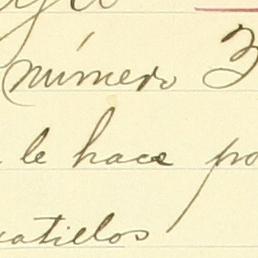 número 3
le hace po
atielos